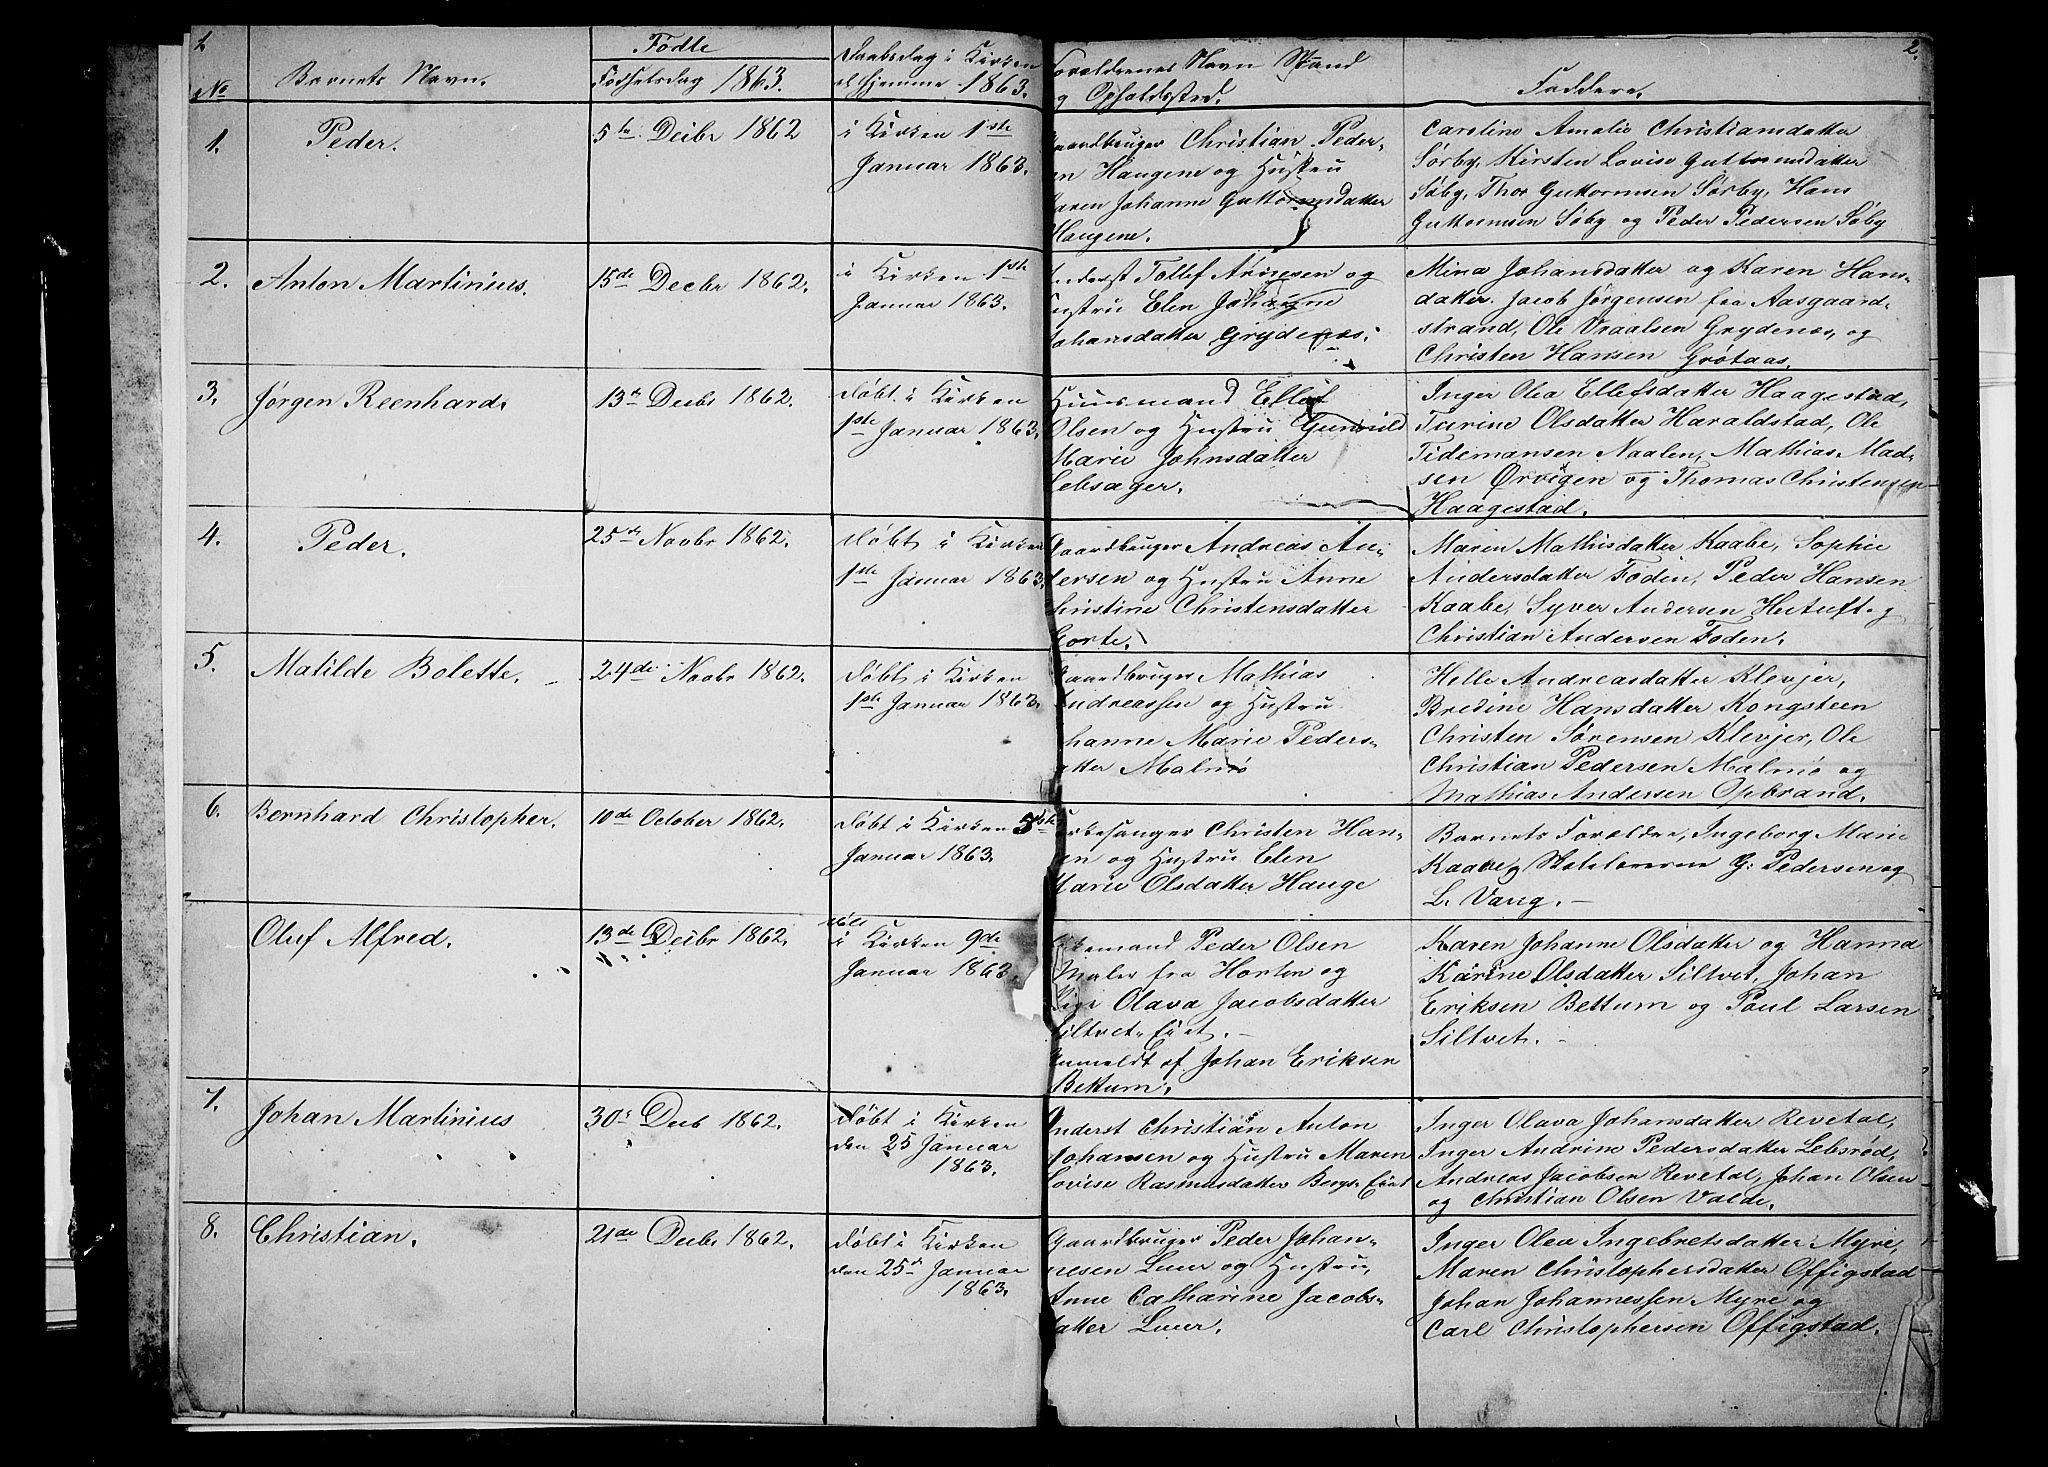 2
2.
Födte
No
Barnets Navn.
Födselsdag 1863.
Daabsdag i Kirken
el Hjemme 1863.
Forældrenes Navn Stand
og Opholdssted.
Faddere.
1.
Peder.
5te Decbr 1862
i Kirken 1ste
Januar 1863.
Gaardbruger Christian Peder-
sen Haugene og Hustru
Karen Johanne Guttormsdatter
Haugene.
Caroline Amalie Christiansdatter
Sørby, Kirsten Lovise Guttormsdatter
Søby, Thor Guttormsen Sørby, Hans
Guttormsen Søby og Peder Pedersen Søby
2.
Anton Martinius.
15de Decbr 1862.
i Kirken 1ste
Januar 1863.
Inderst Tollef Andresen og
Hustru Elen Johanne
Johansdatter Grydenæs.
Mina Johansdatter og Karen Hans-
datter. Jacob Jørgensen fra Aasgaard-
strand, Ole Vraalsen Grydenæs, og
Christen Hansen Grotaas.
3.
Jørgen Reenhard.
13de Decbr 1862.
Døbt i Kirken
1ste Januar 1863.
Huusmand Ellef
Olsen og Hustru Gunnild
Marie Johnsdatter
Lebsager.
Inger Olea Ellefsdatter Haagestad,
Turine Olsdatter Haraldstad, Ole
Tidemansen Naalen, Mathias Mad-
sen Ørvigen og Thomas Christensen
Haagestad.
4.
Peder.
25de Novbr 1862.
Døbt i Kirken
1ste Januar 1863.
Gaardbruger Andreas An-
dersen og Hustru Anne
Christine Christensdatter
Gorte.
Maren Mathisdatter Kaabe, Sophie
Andersdatter Foden, Peder Hansen
Kaabe, Syver Andersen Hetuft og
Christian Andersen Foden.
5.
Matilde Bolette.
24de Novbr 1862.
Døbt i Kirken
1ste Januar 1863.
Gaardbruger Mathias
Andreassen og Hustru
Johanne Marie Peders-
datter Malmø
Helle Andreasdatter Klevjer,
Bredine Hansdatter Kongsteen
Christen Sørensen Klevjer, Ole
Christian Pedersen Malmø og
Mathias Andersen Opbrand.
6.
Bernhard Christopher.
10de October 1862.
Døbt i Kirken 5te
Januar 1863.
Kirkesanger Christen Han-
sen og Hustru Elen
Marie Olsdatter Hauge
Barnets Forældre, Ingeborg Marie
Kaabe, Skolelærerne G. Pedersen og
L. Vang.
Oluf Alfred.
13de Decbr 1862.
Døbt
i Kirken 9de
Januar 1863.
Peder Olsen
Maler fra Horten og
Pige Olava Jacobsdatter
Siltvet Eiet.
Anmeldt af Johan Eriksen
Bettum.
Karen Johanne Olsdatter og Hanna
Karine Olsdatter Siltvet, Johan
Eriksen Bettum og Poul Larsen
Siltvet.
7.
Johan Martinius
30te Decb 1862.
Døbt i Kirken
den 25 Januar
1863.
Inderst Christian Anton
Johansen og Hustru Maren
Lovise Rasmusdatter Berge Eiet
Inger Olava Johansdatter Revetal,
Inger Andrine Pedersdatter Lebsrød,
Andreas Jacobsen Revetal, Johan Olsen
og Christian Olsen Valde.
8.
Christian.
21de Decbr 1862.
Døbt i Kirken
den 25de Januar
1863.
Gaardbruger Peder Johan-
nesen Luer og Hustru,
Anne Catharine Jacobs-
datter Luer.
Inger Olea Ingebretsdatter Myre,
Maren Christophersdatter Offigstad
Johan Johannessen Myre og
Carl Christophersen Offigstad.